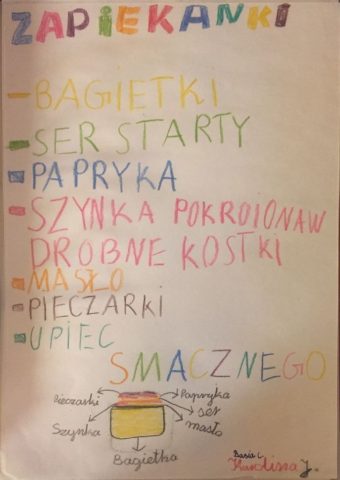 ZAPIEKANKI
- BAGIETKI
- SER STARTY
- PAPRYKA
- SZYNKA POKROIONAW
DROBNE KOSTKI
- MASŁO
- PIECZARKI
- UPIEC
SMACZNEGO
Pieczarki Papryka
ser
Szynka masło
Bagietka
Basia i
Karolina J.